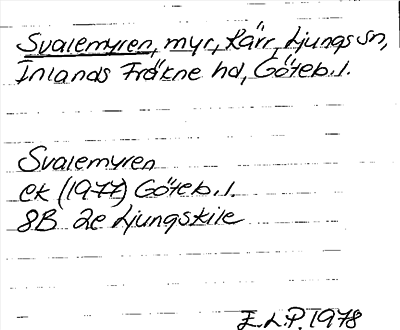 Svalemyren, myr, Kärr, Ljungs sn,
Inlands Fräkne hd, Göteb. l.
Svalemyren
ek (1977) Göteb. l.
8B 2e Ljungskile
E.L.P. 1978